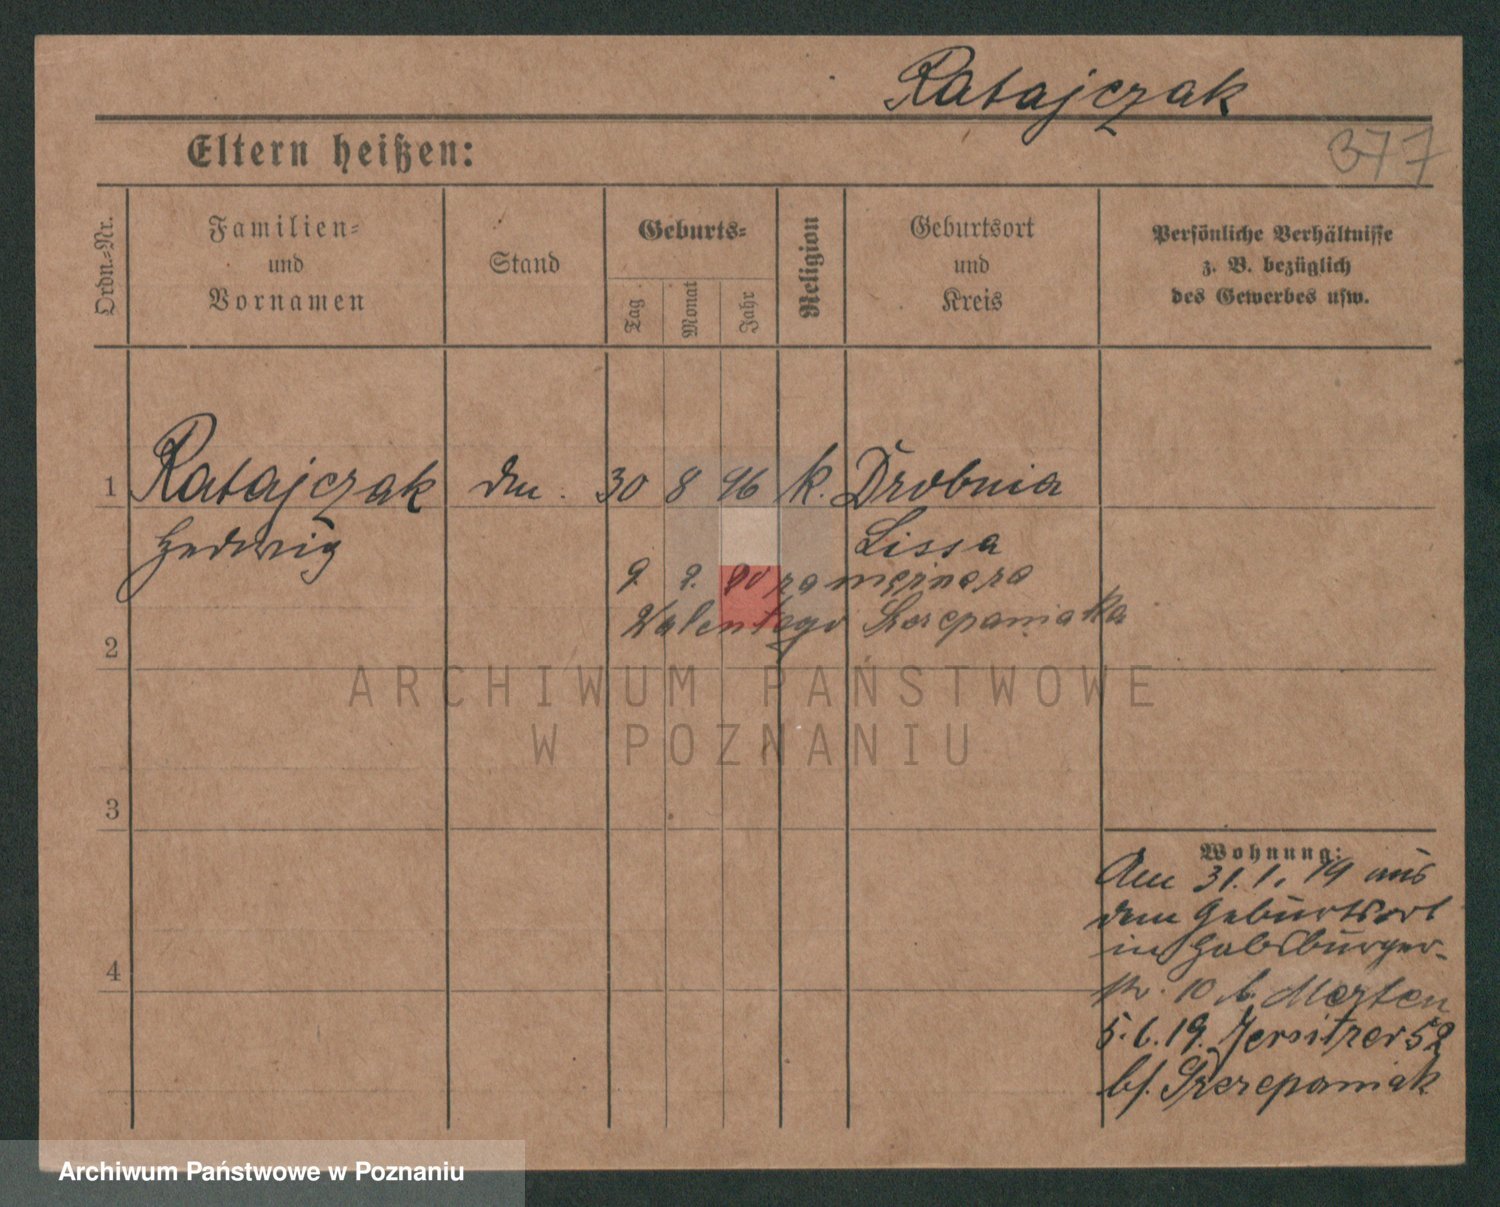 Ratajczak
377
Eltern heißen:
Ordn.-Nr.
Familien-
und
Vornamen
Stand
Geburts-
Tag
Monat
Jahr
Religion
Geburtsort
und
Kreis
Persönliche Verhältnisse
z. B. bezüglich
des Gewerbes usw.
1 Ratajczak 30 8 96 k. Drobnia
Hedwig Lissa
9. 9. 20 za mężna za
Walentego Szczepaniaka
2
ARCHIWUM PAŃSTWOWE
W POZNANIU
3
4
Wohnung:
Am 31.1.19 aus
dem Geburtsort
in Habsburger-
str. 10 b.
5.6.19. Jersitzer 52
b/. Szczepaniak
Archiwum Państwowe w Poznaniu